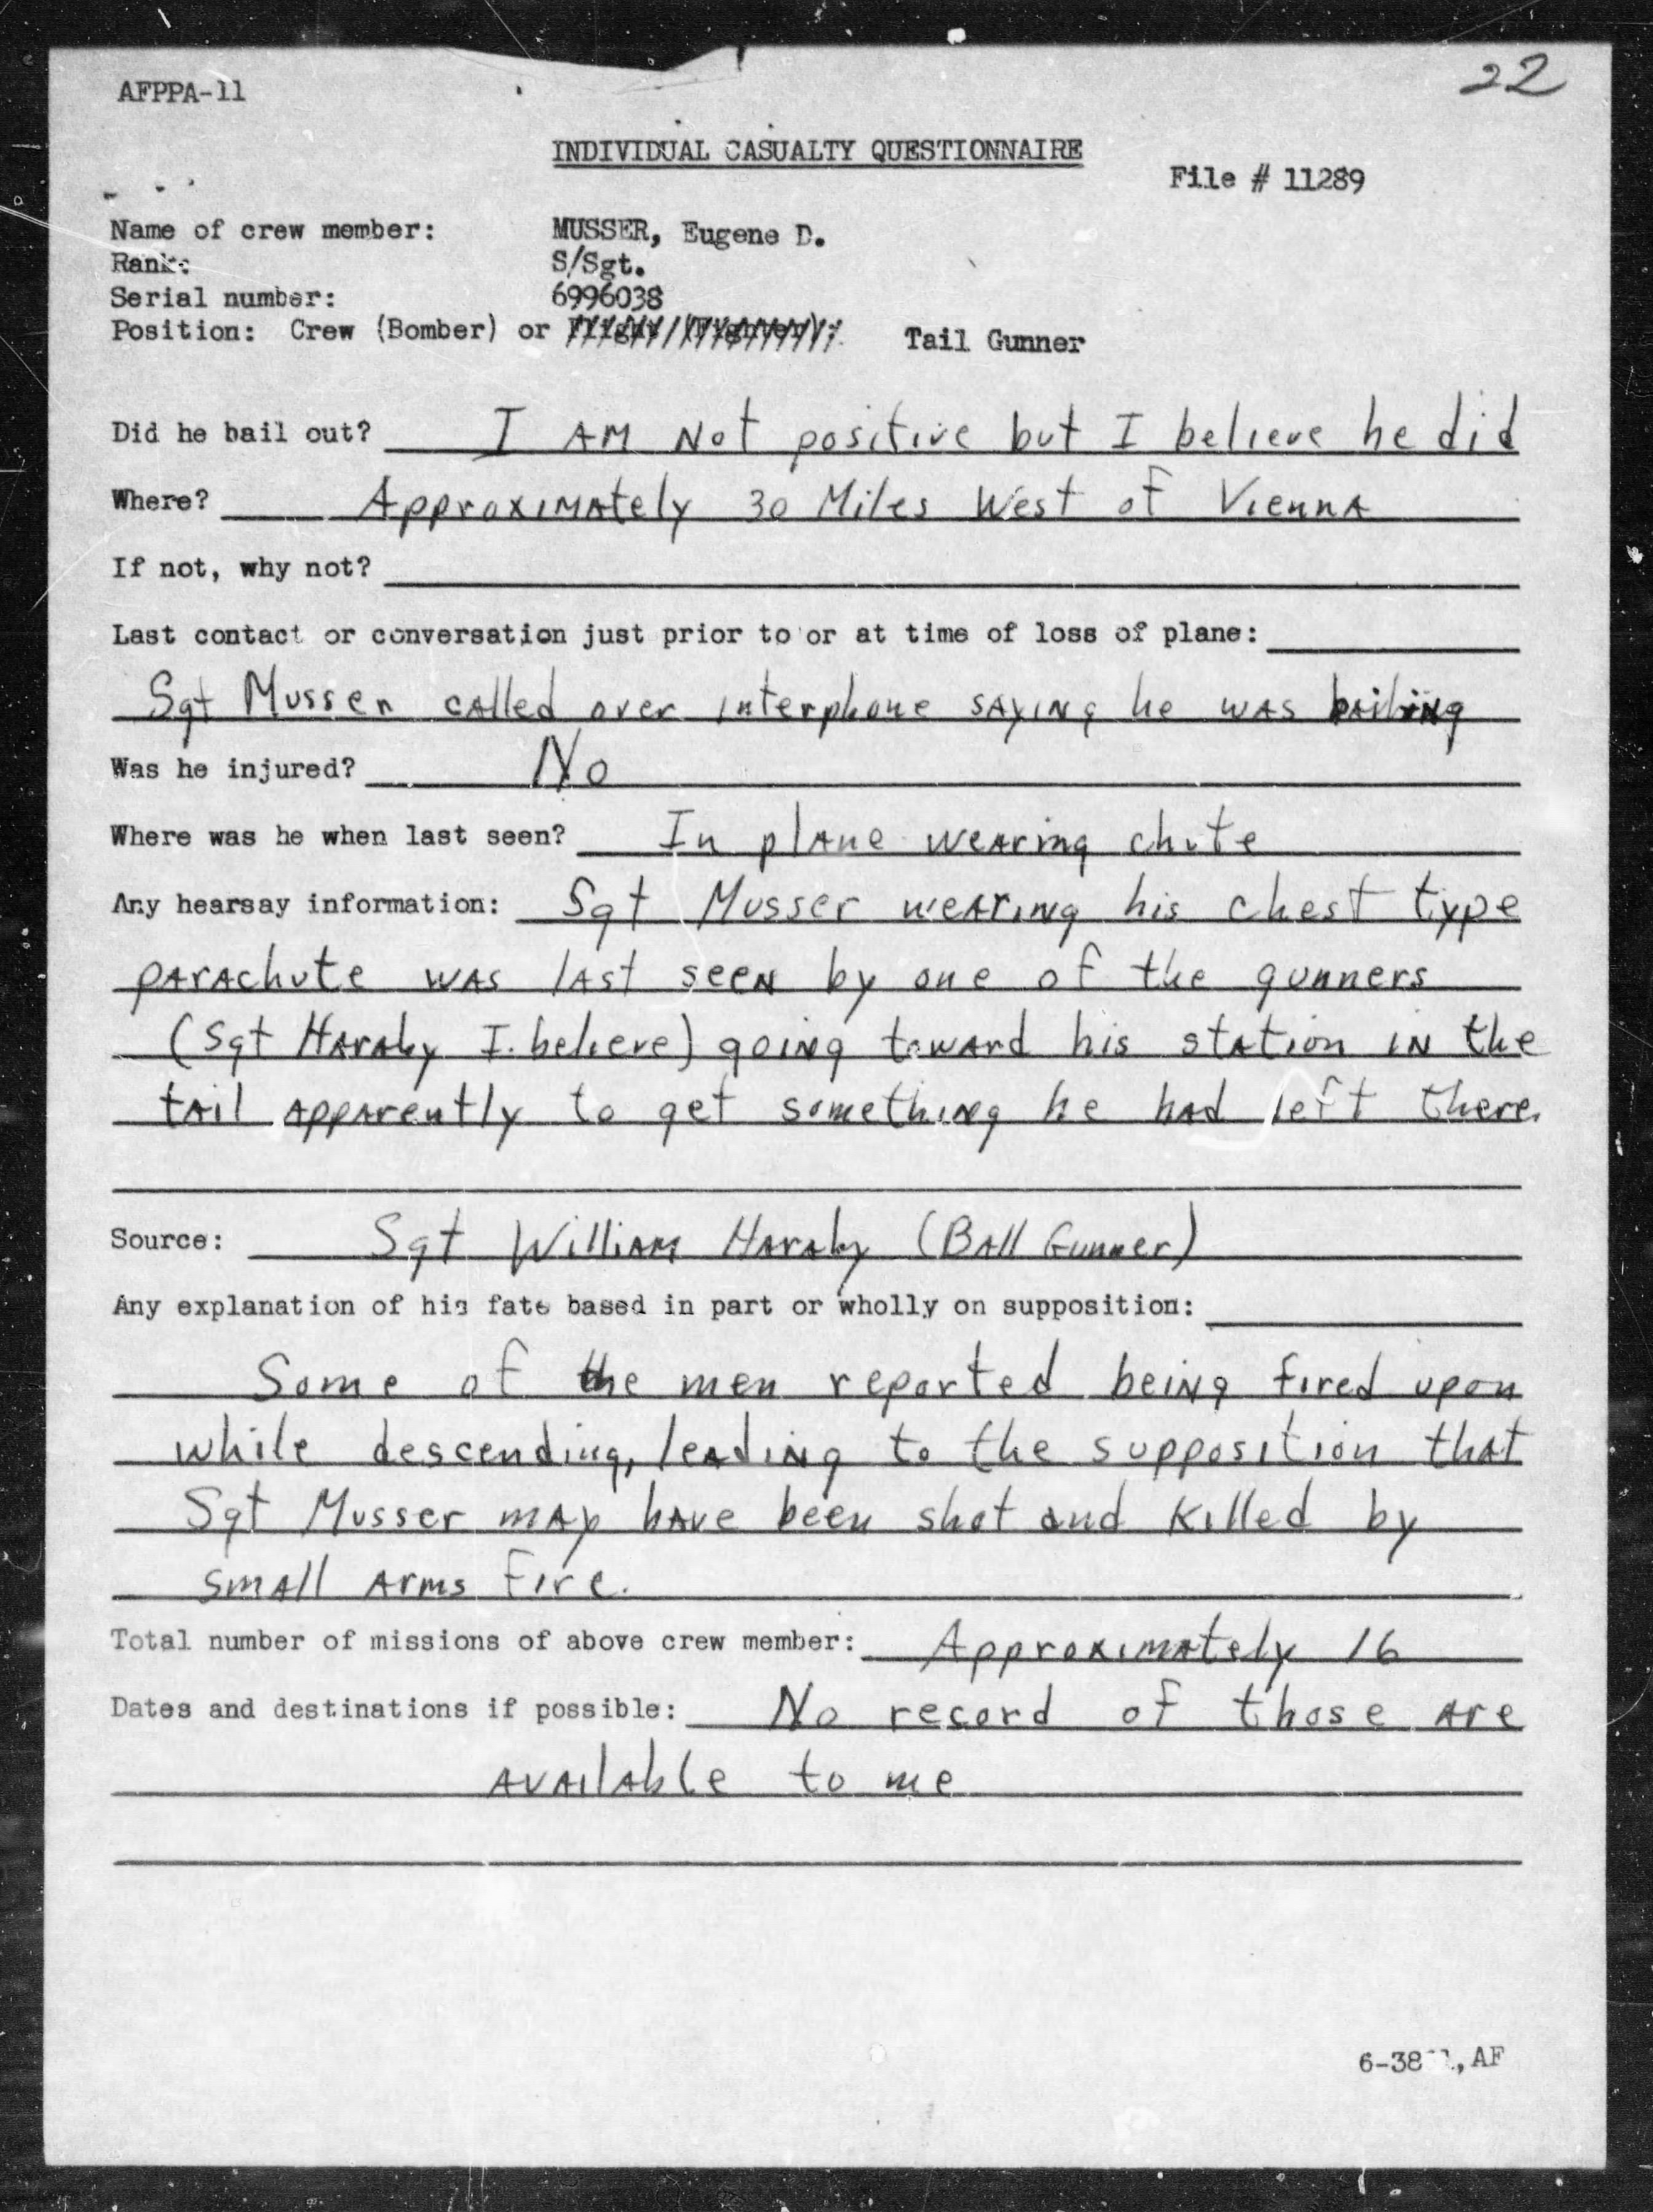 22
AFPPA-11
INDIVIDUAL CASUALTY QUESTIONNAIRE
File # 11289
Name of crew member: MUSSER, Eugene D.
Rank: S/Sgt.
Serial number: 6996038
Position: Crew (Bomber) or Tail Gunner
Did he bail out? I AM Not positive but I believe he did
Where? Approximately 30 Miles West of Vienna
If not, why not?
Last contact or conversation just prior to or at time of loss of plane:
Sgt Musser called over interphone saying he was bailing
Was he injured? No
Where was he when last seen? In plane wearing chute
Any hearsay information: Sgt Musser wearing his chest type
parachute was last seen by one of the gunners
(Sgt I believe) going toward his station in the
tail apparently to get something he had left there.
Source: Sgt William (Ball Gunner)
Any explanation of his fate based in part or wholly on supposition:
Some of the men reported being fired upon
while descending, leading to the supposition that
Sgt Musser may have been shot and killed by
small arms fire.
Total number of missions of above crew member: Approximately 16
Dates and destinations if possible: No record of those are
available to me
AF